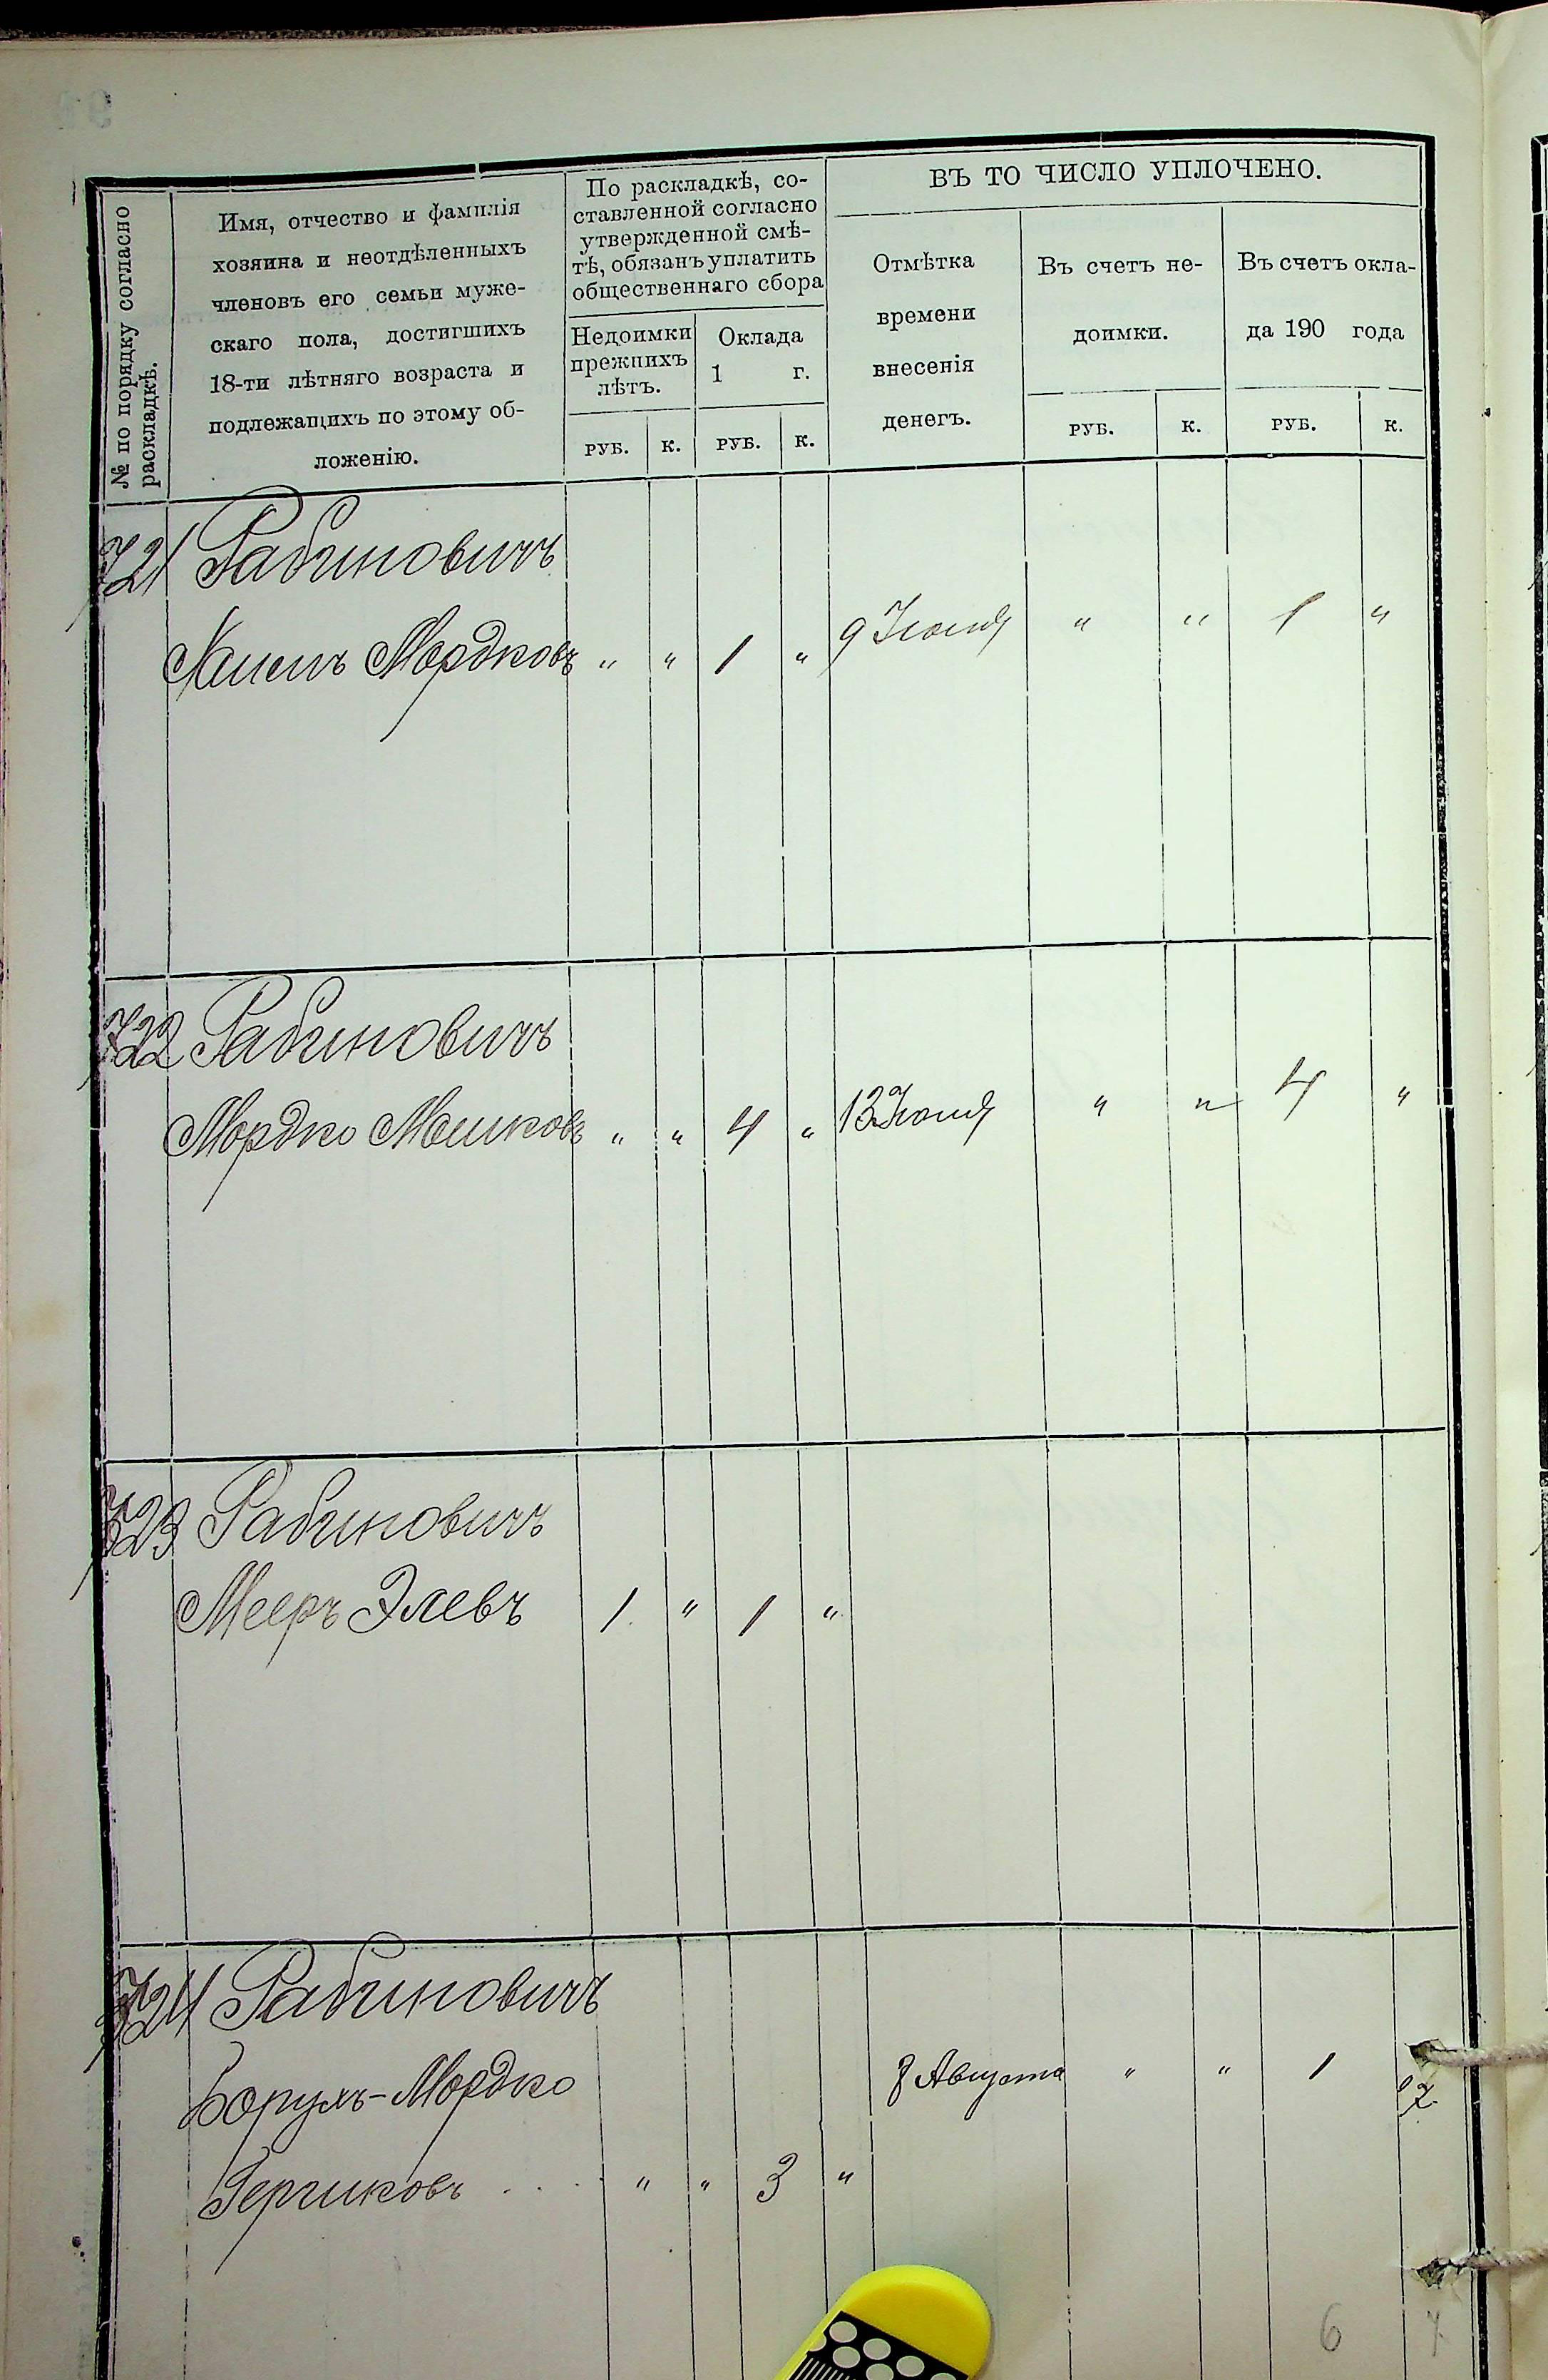 № по порядку согласно
раскладкѣ.
Имя, отчество и фамилія
хозяина и неотдѣленныхъ
членовъ его семьи муже-
скаго пола, достигшихъ
18-ти лѣтняго возраста и
подлежащихъ по этому об-
ложенію.
По раскладкѣ, со-
ставленной согласно
утвержденной смѣ-
тѣ, обязанъ уплатить
общественнаго сбора
Недоимки
прежнихъ
лѣтъ.
Оклада
1 г.
РУБ. К. РУБ. К.
ВЪ ТО ЧИСЛО УПЛОЧЕНО.
Отмѣтка
времени
внесенія
денегъ.
Въ счетъ не-
доимки.
Въ счетъ окла-
да 190 года
РУБ. К. РУБ. К.
721 Рабиновичъ
Мордковъ " " 1 " 9 Іюня " " 1 "
722 Рабиновичъ
Мордко Мошковъ " " 4 " 13 Іюня " " 4 "
723 Рабиновичъ
Мееръ Элевъ 1 " 1 "
724 Рабиновичъ
Борухъ-Мордко 8 Августа " " 1
Гершковъ " " 3 "
6